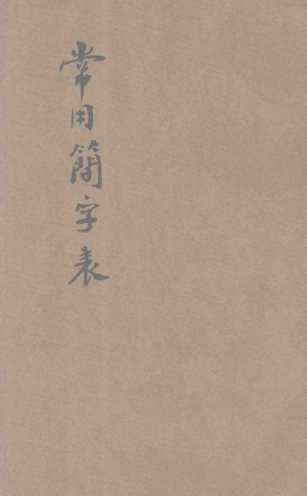 常用簡字表